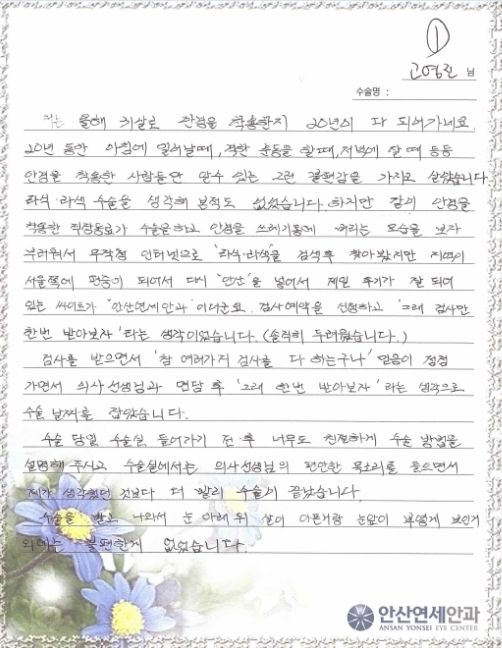 ①
고영진 님
수술명 :
저는 올해 31살로 안경을 착용한지 20년이 다 되어가네요.
20년 동안 아침에 일어날때, 격한 운동을 할때, 저녁에 잘 때 등등
안경을 착용한 사람들만 알수 있는 그런 불편감을 가지고 살았습니다.
라식·라섹 수술을 생각해 본적도 없었습니다. 하지만 같이 안경을
착용한 직장동료가 수술을하고 안경을 쓰레기통에 버리는 모습을 보자
부러워서 무작정 인터넷으로 '라식·라섹'을 검색후 찾아봤지만 지역이
서울쪽에 편중이 되어서 다시 '안산'을 넣어서 제일 후기가 잘 되어
있는 싸이트가 "안산연세안과"이더군요. 검사예약을 신청하고 '그래 검사만
한번 받아보자'라는 생각이었습니다. (솔직히 두려웠습니다.)
검사를 받으면서 '참 여러가지 검사를 다 하는구나' 믿음이 점점
가면서 의사선생님과 면담 후 '그래 한번 받아보자'라는 생각으로
수술 날짜를 잡았습니다.
수술 당일 수술실 들어가기 전·후 너무도 친절하게 수술 방법을
설명해 주시고 수술실에서는 의사선생님의 편안한 목소리를 들으면서
제가 생각했던 것보다 더 빨리 수술이 끝났습니다.
수술을 받고 나와서 눈 아래 위 살이 아픈거랑 눈앞이 뿌옇게 보인거
외에는 불편한게 없었습니다.
안산연세안과
ANSAN YONSEI EYE CENTER